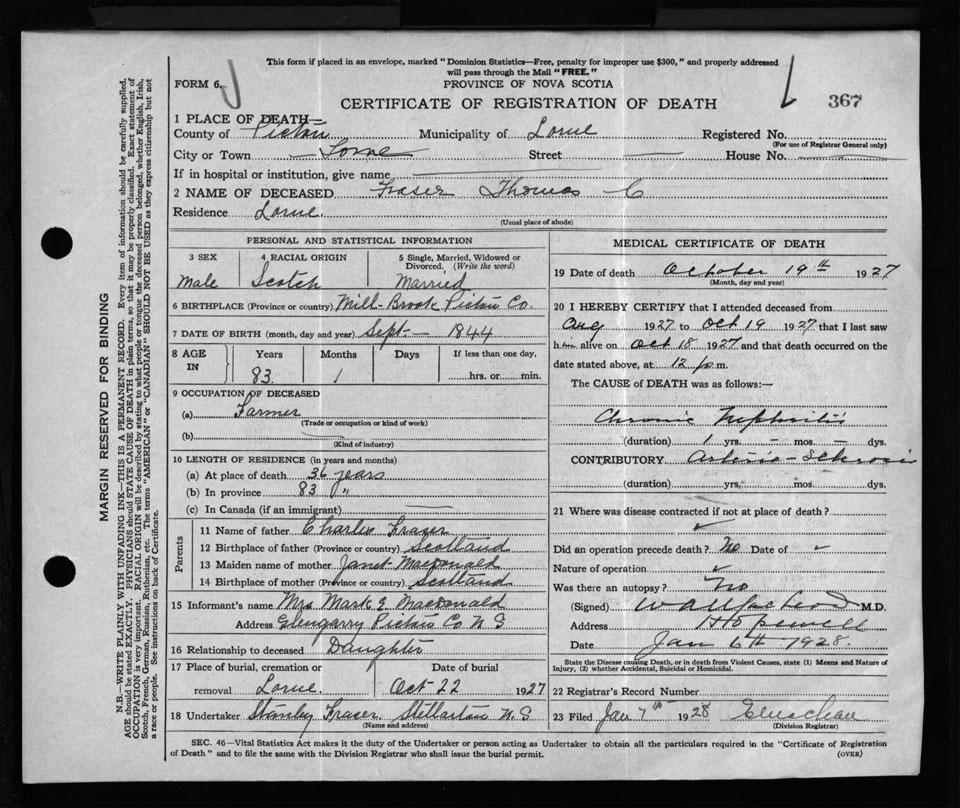 This form if placed in an envelope, marked "Dominion Statistics—Free, penalty for improper use $300," and properly addressed
will pass through the Mail "FREE."
FORM 6.
PROVINCE OF NOVA SCOTIA
CERTIFICATE OF REGISTRATION OF DEATH
367
1 PLACE OF DEATH—
County of Pictou Municipality of Lorne Registered No.
(For use of Registrar General only)
City or Town Lorne Street — House No. —
If in hospital or institution, give name
2 NAME OF DECEASED Fraser Thomas C
Residence Lorne.
(Usual place of abode)
PERSONAL AND STATISTICAL INFORMATION
3 SEX 4 RACIAL ORIGIN 5 Single, Married, Widowed or Divorced. (Write the word)
Male Scotch Married
6 BIRTHPLACE (Province or country) Mill-Brook Pictou Co.
7 DATE OF BIRTH (month, day and year) Sept — 1844
8 AGE IN Years Months Days If less than one day,
83. 1 hrs. or min.
9 OCCUPATION OF DECEASED
(a) Farmer
(Trade or occupation or kind of work)
(b)
(Kind of industry)
10 LENGTH OF RESIDENCE (in years and months)
(a) At place of death 36 years
(b) In province 83 "
(c) In Canada (if an immigrant) —
Parents
11 Name of father Charles Fraser
12 Birthplace of father (Province or country) Scotland
13 Maiden name of mother Janet MacDonald
14 Birthplace of mother (Province or country) Scotland
15 Informant's name Mrs Mark E Macdonald
Address Glengarry Pictou Co. N S
16 Relationship to deceased Daughter
17 Place of burial, cremation or removal Lorne. Date of burial Oct 22 1927
18 Undertaker Stanley Fraser Stellarton N.S
(Name and address)
MEDICAL CERTIFICATE OF DEATH
19 Date of death October 19th 1927
(Month, day and year)
20 I HEREBY CERTIFY that I attended deceased from
Aug 1927 to Oct 19 1927 that I last saw
him alive on Oct 18 1927 and that death occurred on the
date stated above, at 12 p.m.
The CAUSE of DEATH was as follows:—
Chronic Nephritis
(duration) 1 yrs. — mos. — dys.
CONTRIBUTORY
(duration) yrs. mos. dys.
21 Where was disease contracted if not at place of death?
Did an operation precede death? No Date of ✓
Nature of operation ✓
Was there an autopsy? No
(Signed) M.D.
Address Hopewell
Date Jan 6th 1928.
State the Disease causing Death, or in death from Violent Causes, state (1) Means and Nature of
Injury, (2) whether Accidental, Suicidal or Homicidal.
22 Registrar's Record Number
23 Filed Jan 7th 1928
(Division Registrar)
SEC. 46—Vital Statistics Act makes it the duty of the Undertaker or person acting as Undertaker to obtain all the particulars required in the "Certificate of Registration
of Death" and to file the same with the Division Registrar who shall issue the burial permit.
(OVER)
MARGIN RESERVED FOR BINDING
N.B.—WRITE PLAINLY WITH UNFADING INK—THIS IS A PERMANENT RECORD. Every item of information should be carefully supplied.
AGE should be stated EXACTLY. PHYSICIANS should STATE CAUSE OF DEATH in plain terms, so that it may be properly classified. Exact statement of
OCCUPATION is very important. RACIAL ORIGIN will be described by stating to what people or tongue the deceased person belonged, whether English, Irish,
Scotch, French, German, Russian, Ruthenian, etc. The terms "AMERICAN" or "CANADIAN" SHOULD NOT BE USED as they express citizenship but not
a race or people. See instructions on back of Certificate.